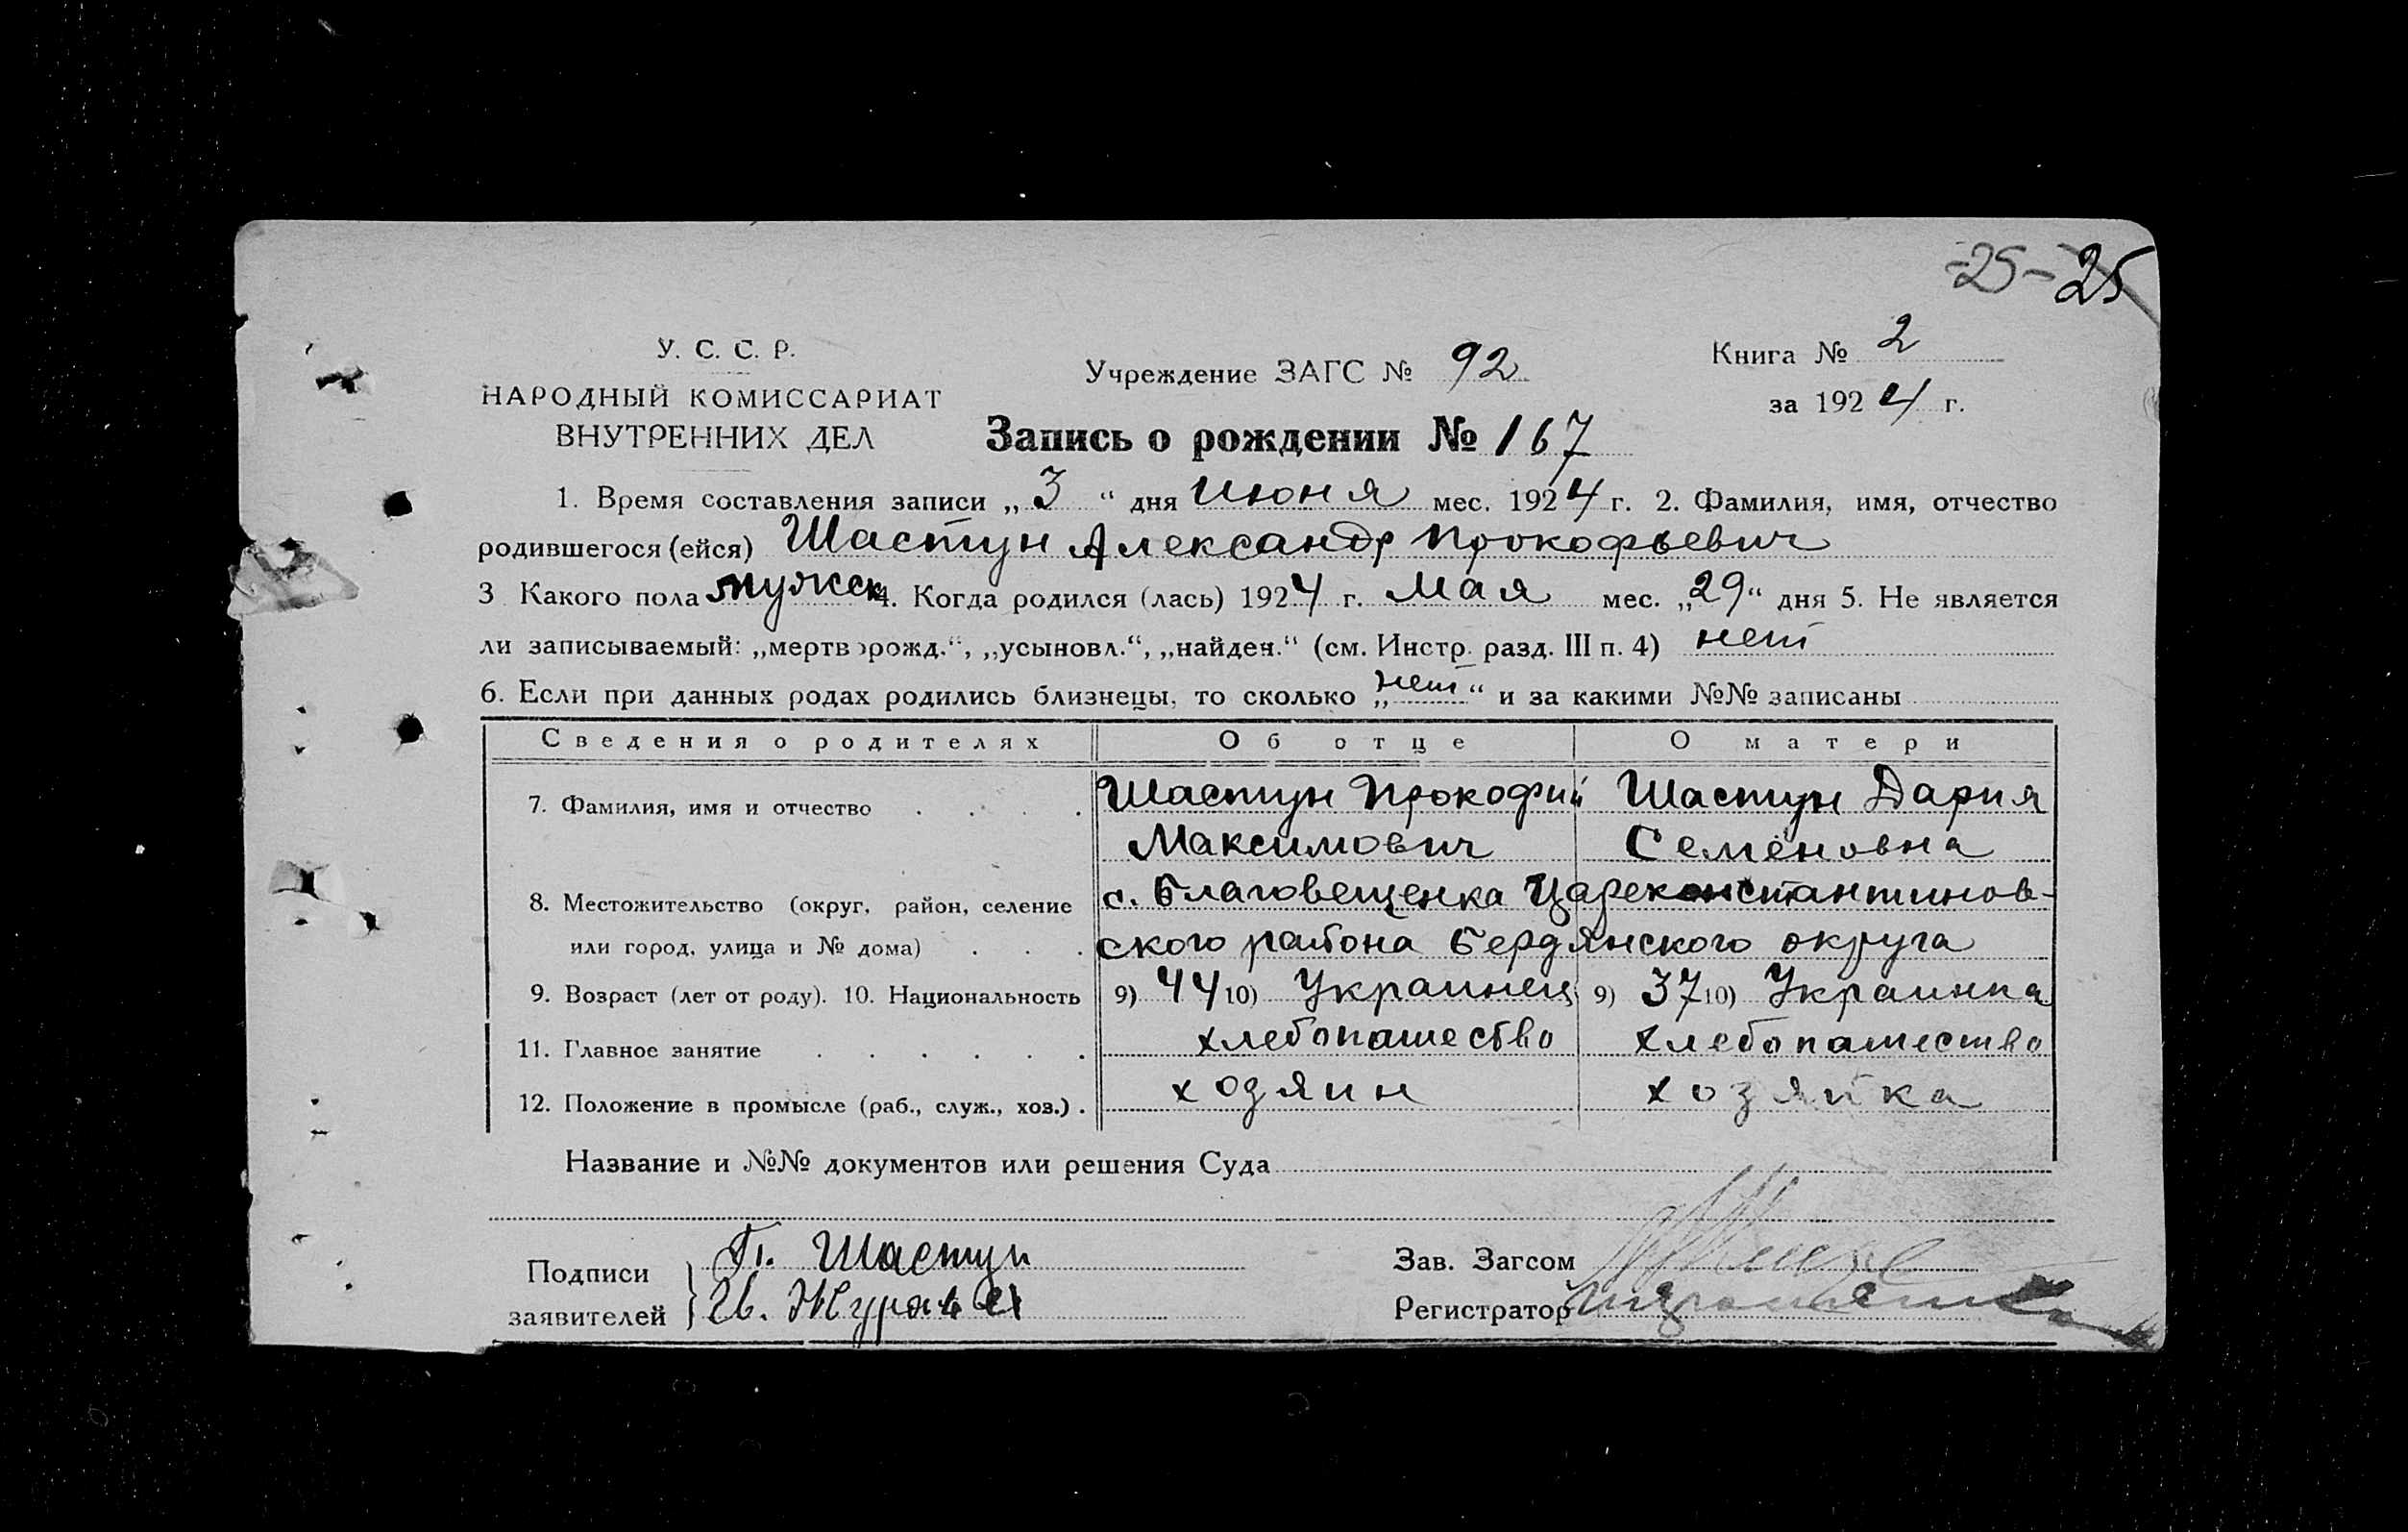 -25- 25
У. С. С. Р.
НАРОДНЫЙ КОМИССАРИАТ
ВНУТРЕННИХ ДЕЛ
Учреждение ЗАГС № 92
Книга № 2
за 1924 г.
Запись о рождении № 167
1. Время составления записи „3“ дня Июня мес. 1924 г. 2. Фамилия, имя, отчество
родившегося (ейся) Шастун Александр Прокофьевич
3 Какого пола мужск 4. Когда родился (лась) 1924 г. Мая мес. „29“ дня 5. Не является
ли записываемый: „мертворожд.“, „усыновл.“, „найден.“ (см. Инстр. разд. III п. 4) нет
6. Если при данных родах родились близнецы, то сколько „нет“ и за какими №№ записаны
Сведения о родителях Об отце О матери
7. Фамилия, имя и отчество . . . . Шастун Прокофий Шастун Дария
Максимович Семёновна
8. Местожительство (округ, район, селение с. Благовещенка Цареконстантинов-
или город, улица и № дома) . . . ского района Бердянского округа
9. Возраст (лет от роду). 10. Национальность 9) 44 10) Украинец 9) 37 10) Украинка
11. Главное занятие . . . . . . хлебопашество хлебопашество
12. Положение в промысле (раб., служ., хоз.) . хозяин хозяйка
Название и №№ документов или решения Суда
Подписи
заявителей
П. Шастун
Ив. Журавел
Зав. Загсом
Регистратор